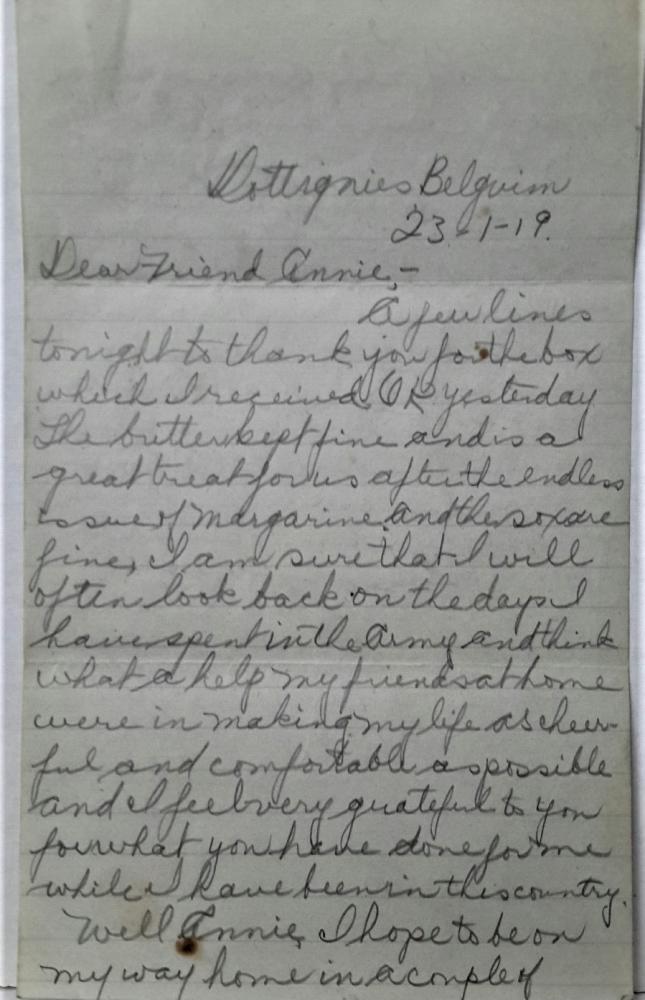 Dottignies Belguim
23-1-19.
Dear Friend Annie,-
A few lines
tonight to thank you for the box
which I received OK yesterday
The butter kept fine and is a
great treat for us after the endless
issue of Margarine, and the sox are
fine, I am sure that I will
often look back on the days I
have spent in the Army and think
what a help my friends at home
were in making my life as cheer-
ful and comfortable as possible
and I feel very grateful to you
for what you have done for me
while I have been in this country.
Well Annie, I hope to be on
my way home in a couple of